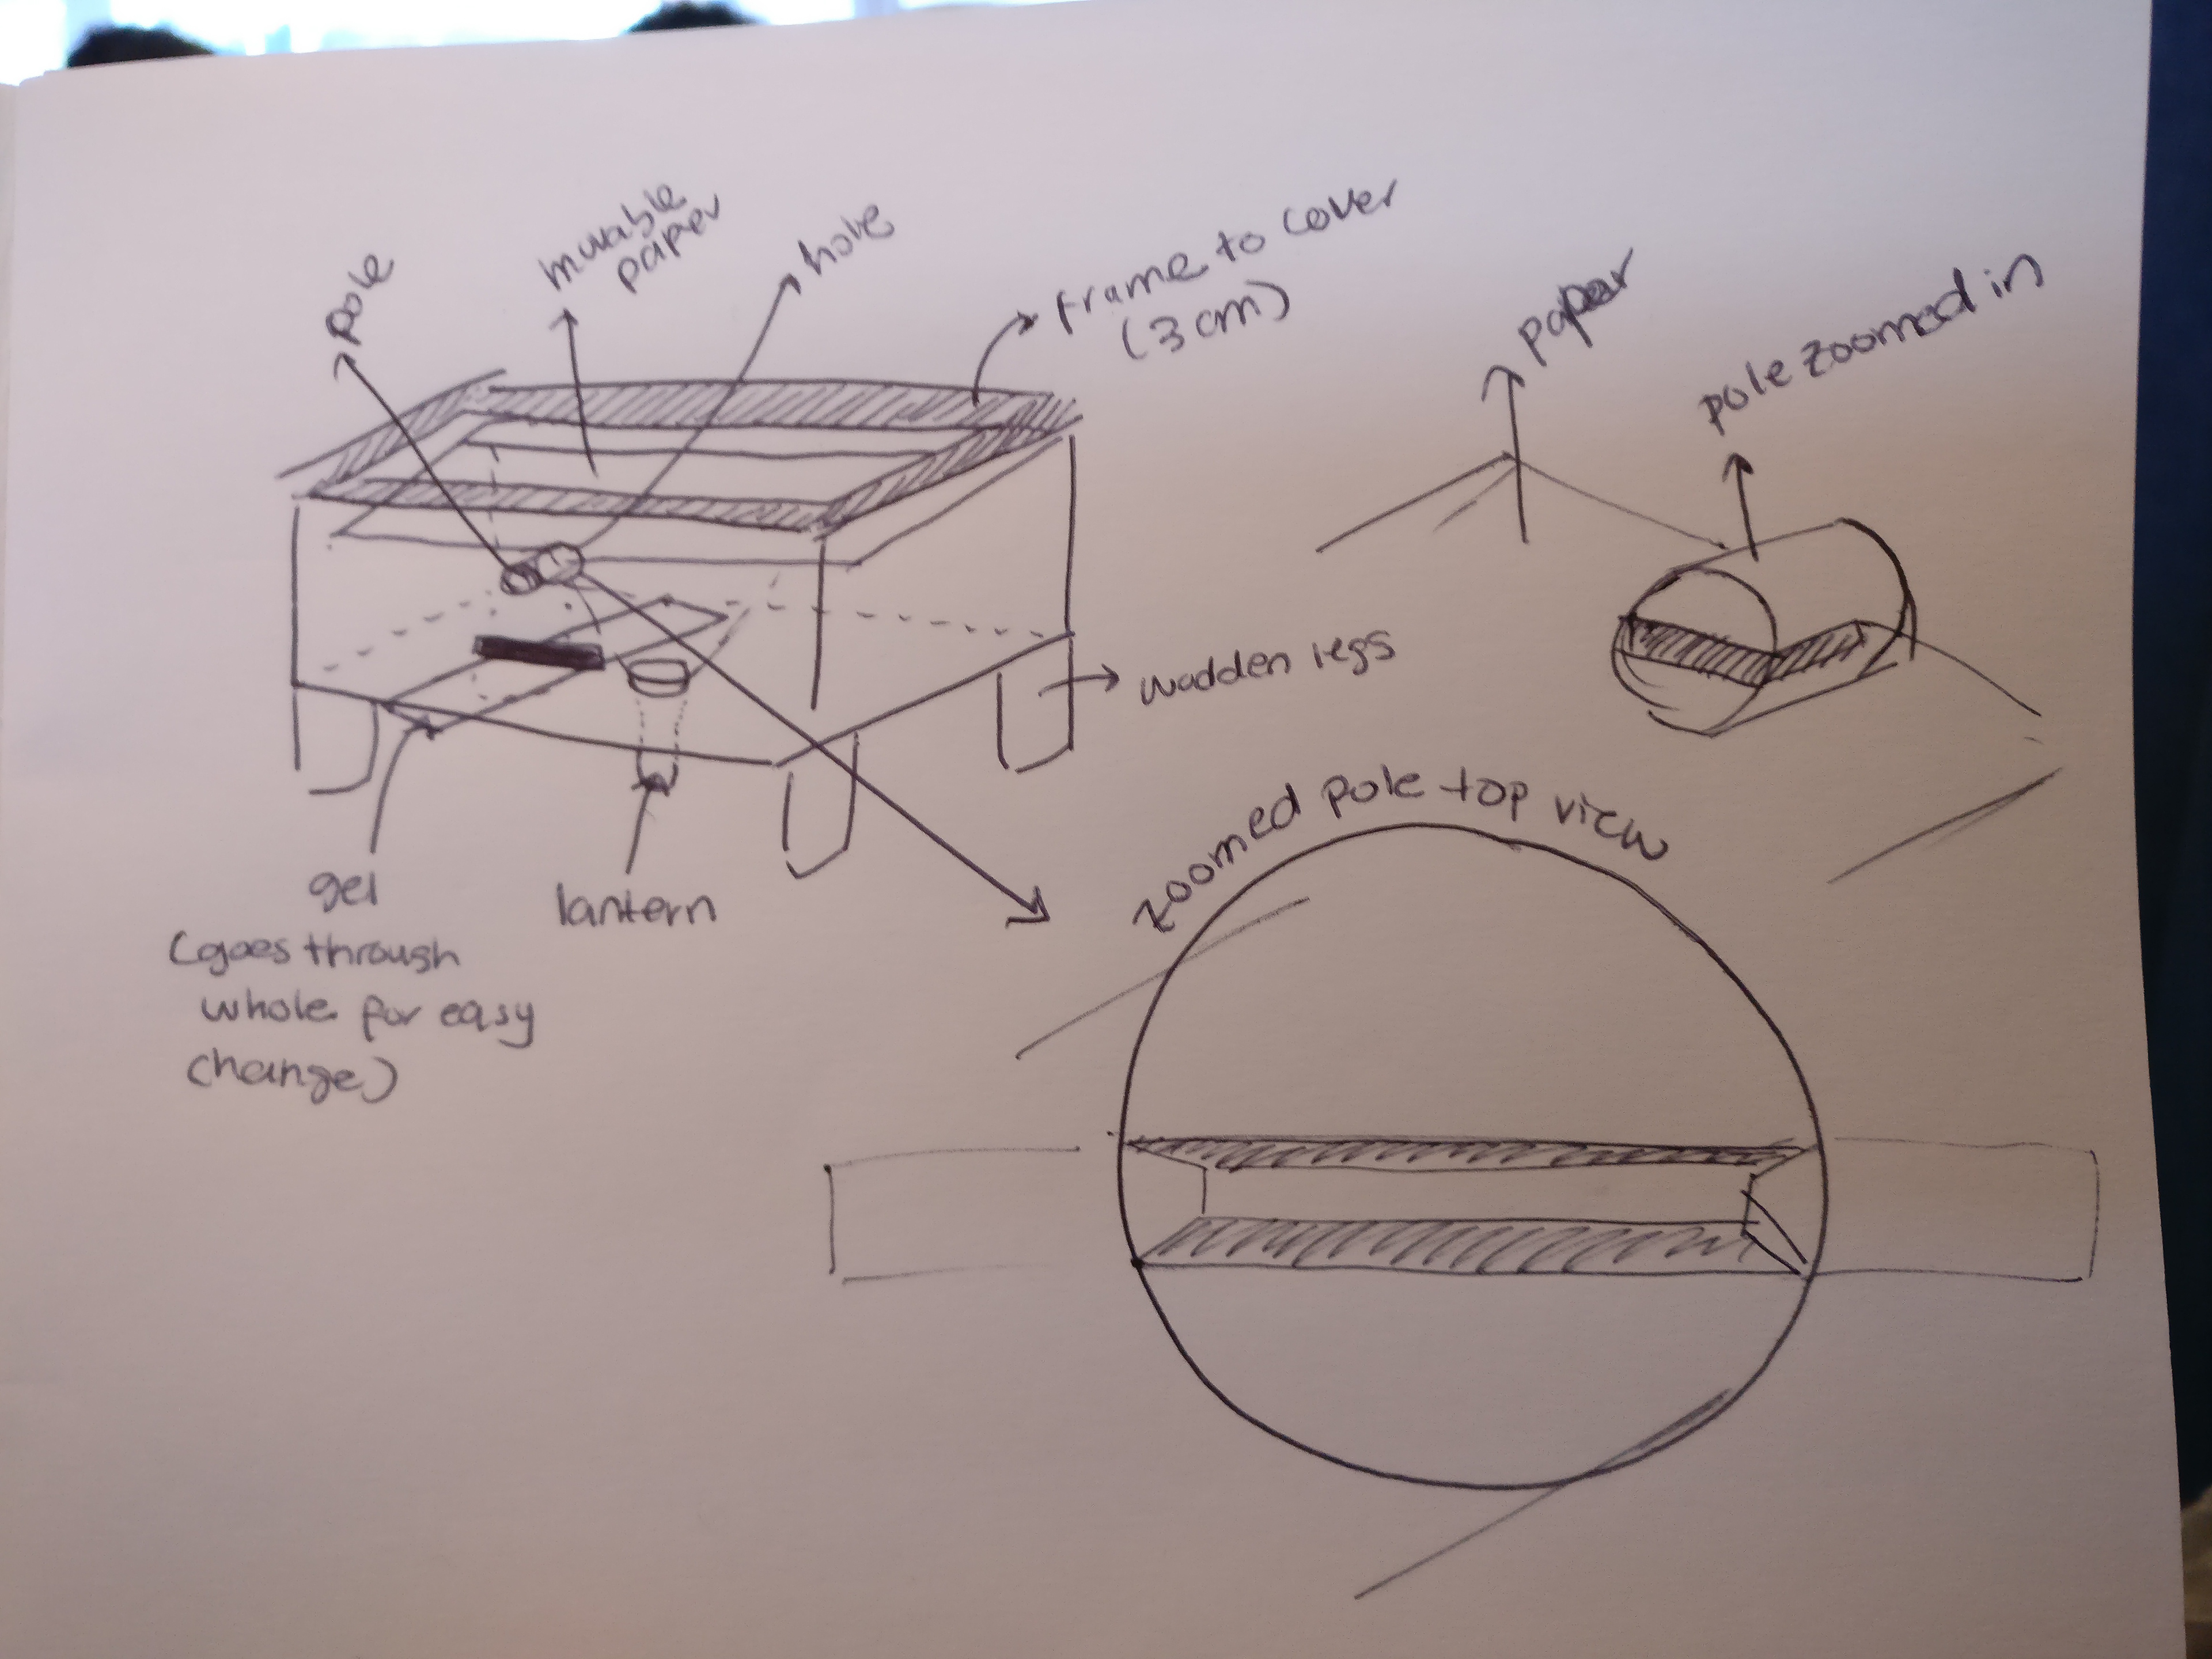 pole
movable
paper
hole
frame to cover
(3 cm)
paper
pole zoomed in
wooden legs
gel
(goes through
whole for easy
change)
lantern
zoomed pole top view